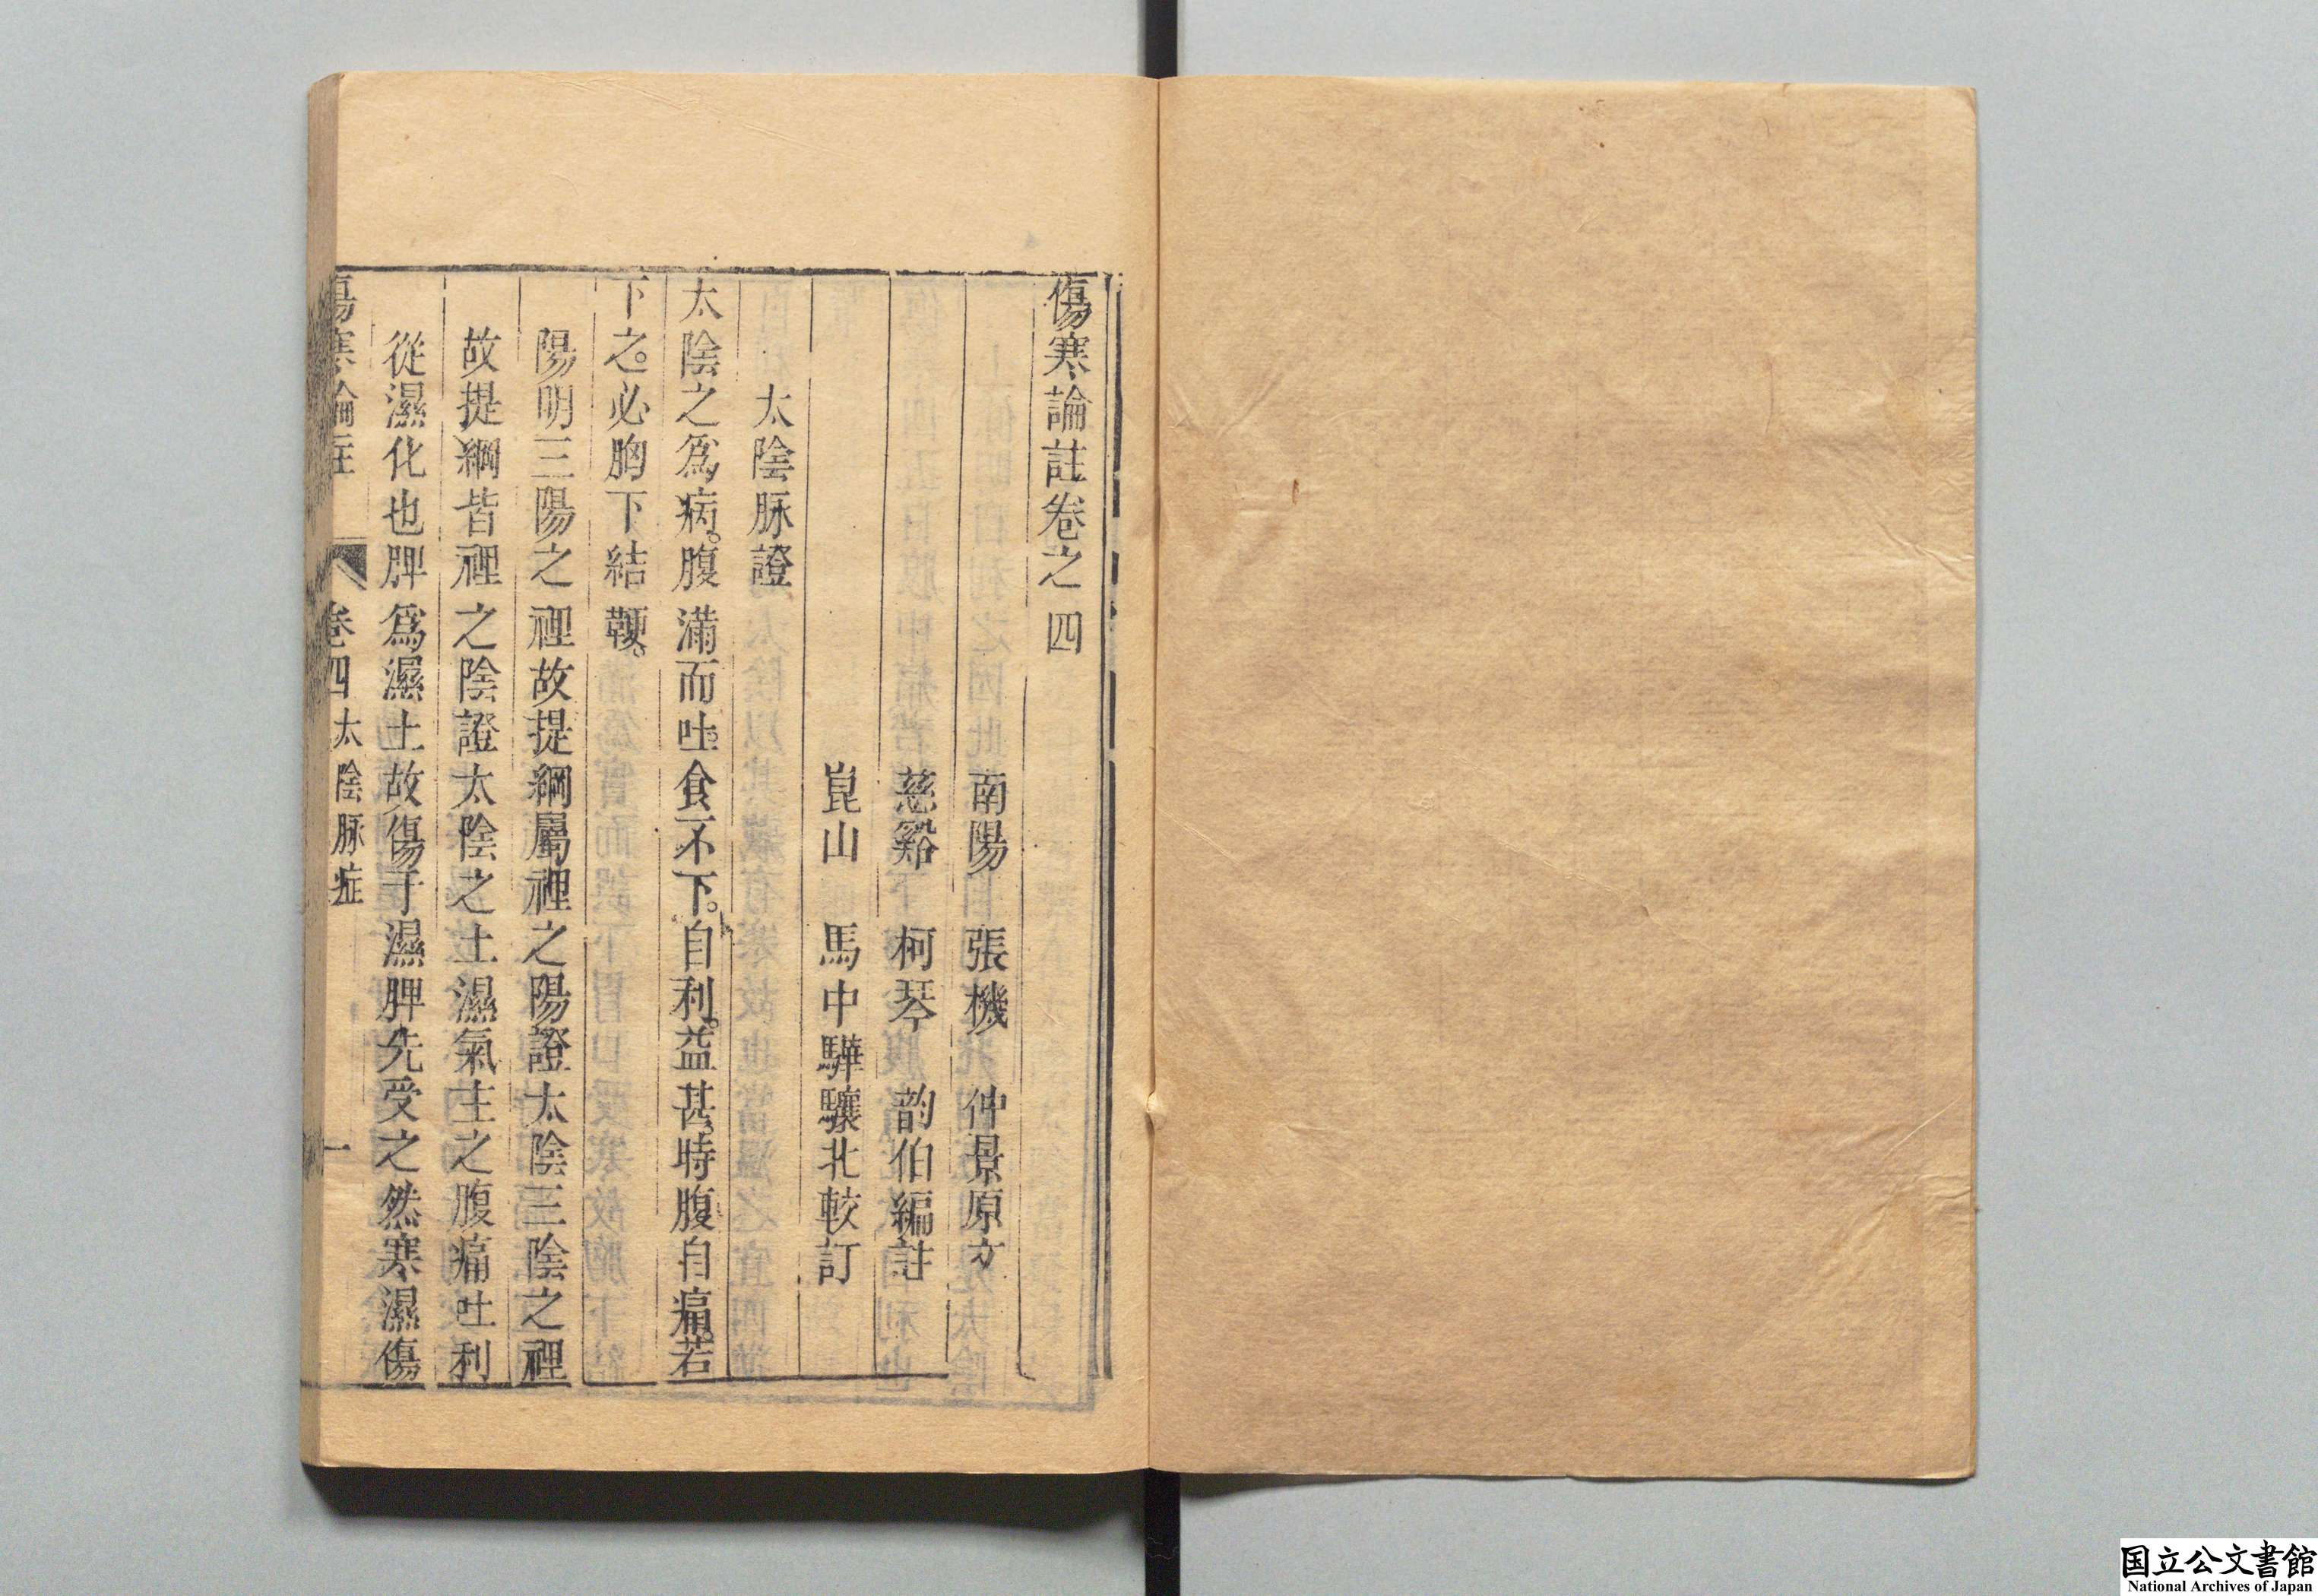 傷寒論註卷之四
南陽 張機 仲景原文
慈谿 柯琴 韵伯編註
崑山 馬中驊驤北較訂
太陰脉證
太陰之爲病。腹滿而吐。食不下。自利。益甚。時腹自痛。若
下之。必胸下結鞕。
陽明三陽之裡故提綱屬裡之陽證太陰三陰之裡
故提綱皆裡之陰證太陰之土濕氣主之腹痛吐利
從濕化也脾爲濕土故傷于濕脾先受之然寒濕傷
傷寒論註 卷四 太陰脉症 一
国立公文書館
National Archives of Japan